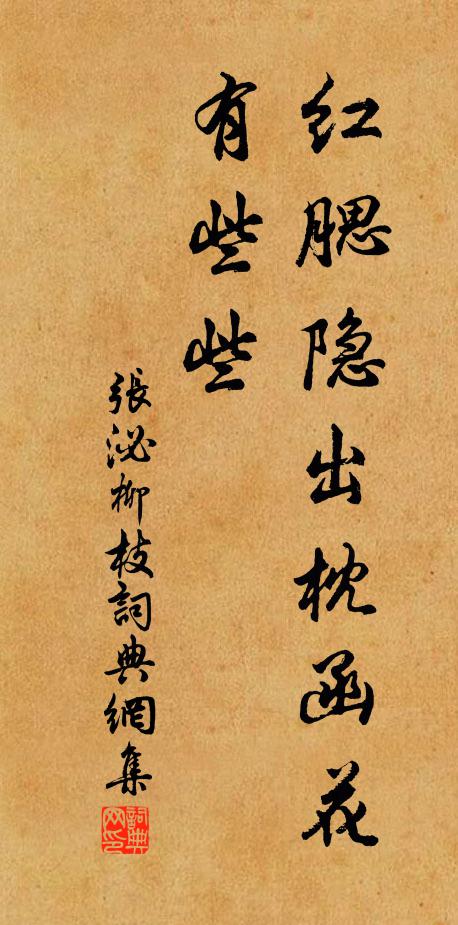 红腮隐出枕函花
有些些
張泌柳枝詞典網集
詞典网印